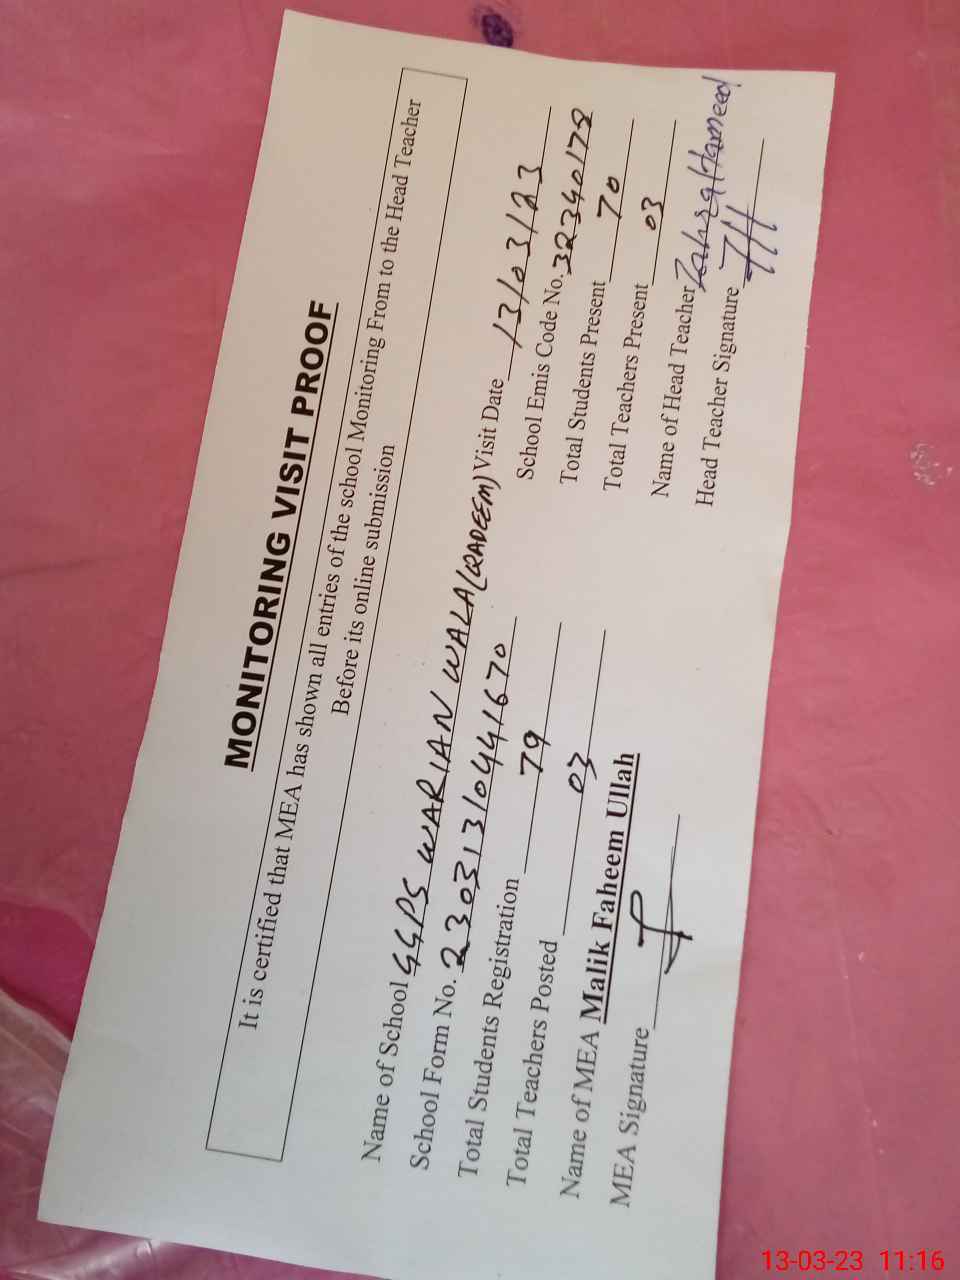 MONITORING VISIT PROOF
It is certified that MEA has shown all entries of the school Monitoring From to the Head Teacher
Before its online submission
Name of School GGPS WARIAN WALA (QADEEM) Visit Date 13/03/23
School Form No. 230313104441670 School Emis Code No. 32340178
Total Students Registration 79 Total Students Present 70
Total Teachers Posted 03 Total Teachers Present 03
Name of MEA Malik Faheem Ullah Name of Head Teacher Zahra Hameed
MEA Signature Head Teacher Signature
13-03-23 11:16